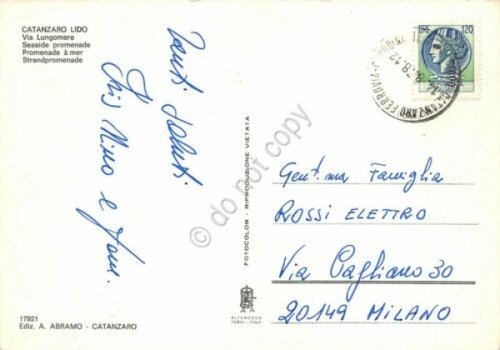 CATANZARO LIDO
Via Lungomare
Seaside promenade
Promenade à mer
Strandpromenade
Tanti Saluti
Nino e
120
CATANZARO FERROVIA
FOTOCOLOR - RIPRODUZIONE VIETATA
do not copy
Gent.ma Famiglia
ROSSI ELETTRO
Via Pagliano 30
20149 MILANO
17921
Ediz. A. ABRAMO - CATANZARO
ALTEROCCA
TERNI - ITALY